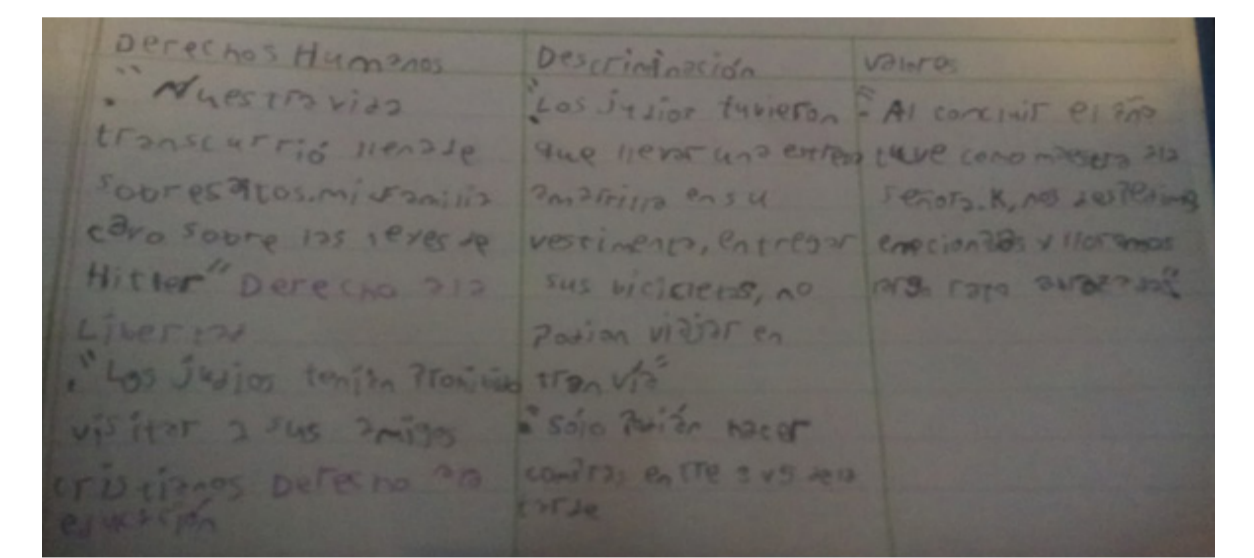 Derechos Humanos
" Nuestra vida
transcurrió llena de
sobresaltos. mi familia
cayo sobre las leyes de
Hitler" Derecho a la
Libertad
"Los judios tenian Prohibido
visitar a sus amigos
cristianos Derecho a la
educación
Descriminación
"Los judios tuvieron
que llevar una estrella
amarilla en su
vestimenta, entregar
sus vicicletas, no
Podian viajar en
tran vía"
"Sólo Podían hacer
compras entre 3 y 5 de la
tarde
valores
"Al concluir el año
tuve como maestra a la
señora. K, nos despedimos
emocionadas y lloramos
largo rato abrazadas"